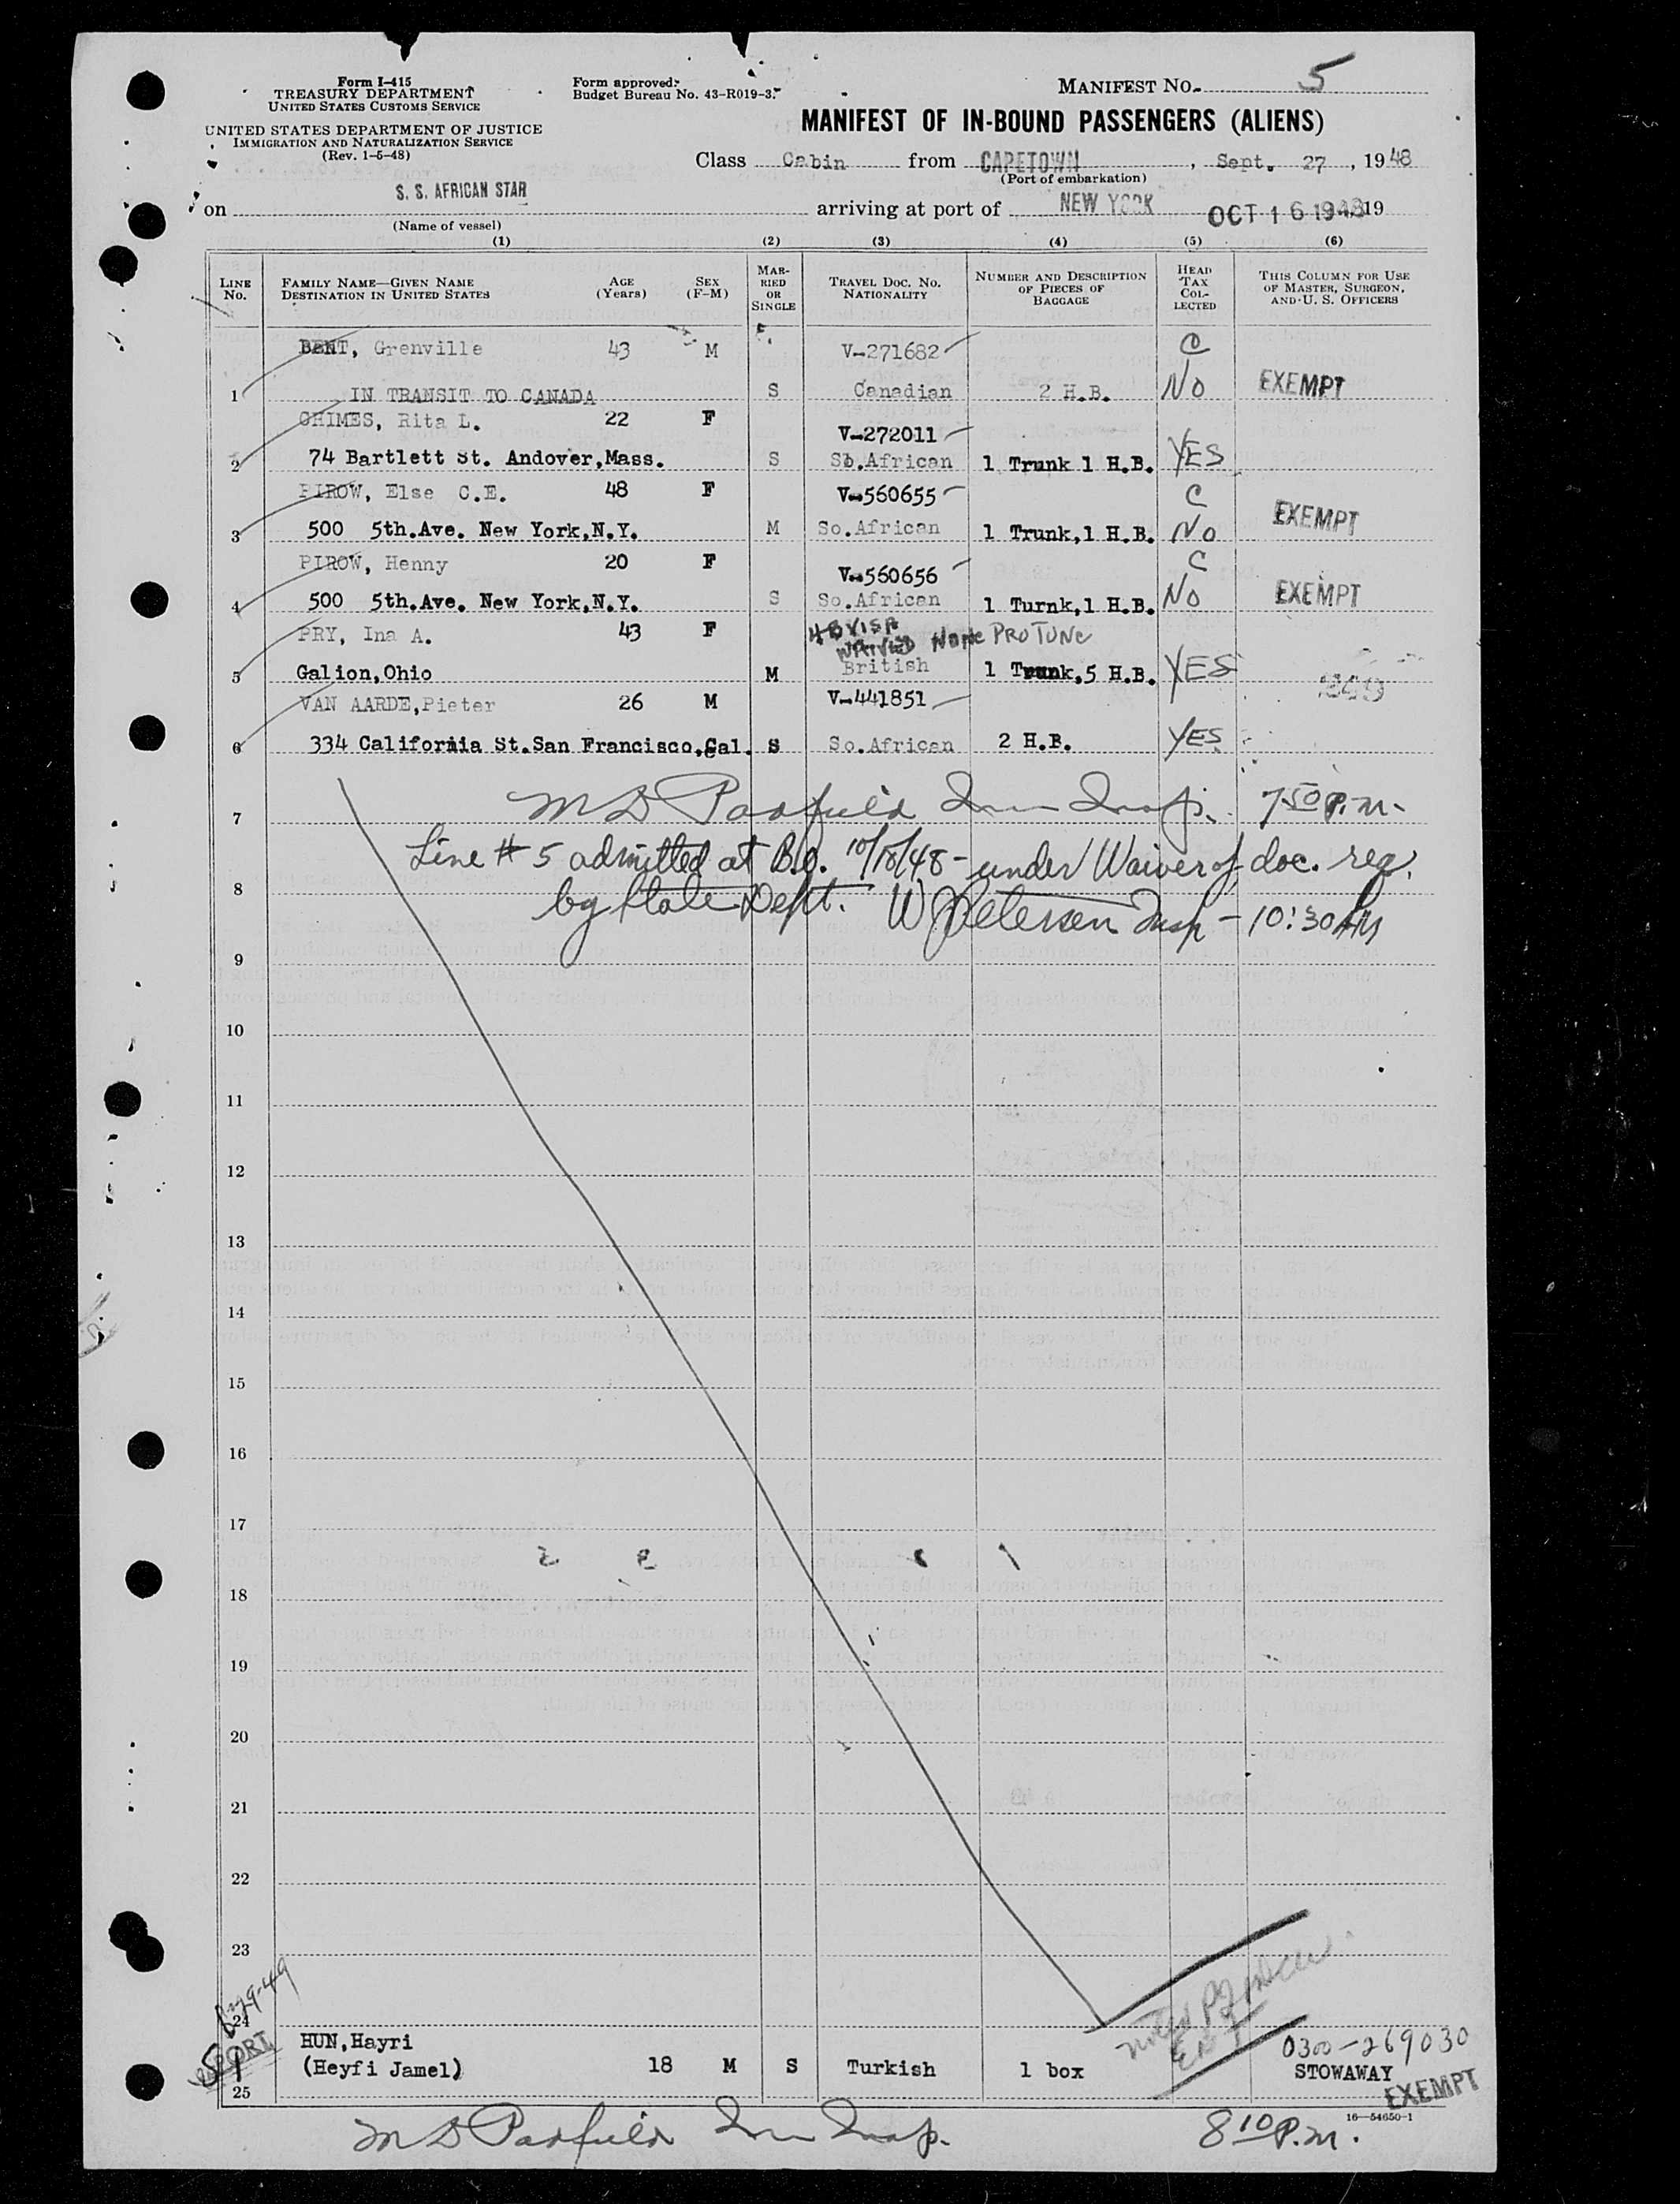 Form I-415
TREASURY DEPARTMENT
UNITED STATES CUSTOMS SERVICE
UNITED STATES DEPARTMENT OF JUSTICE
IMMIGRATION AND NATURALIZATION SERVICE
(Rev. 1-5-48)
Form approved:
Budget Bureau No. 43-R019-3.
MANIFEST NO. 5
MANIFEST OF IN-BOUND PASSENGERS (ALIENS)
Class Cabin from CAPETOWN, Sept. 27, 1948
(Port of embarkation)
on S. S. AFRICAN STAR arriving at port of NEW YORK OCT 16 1948 19
(Name of vessel)
(1) (2) (3) (4) (5) (6)
LINE No. FAMILY NAME—GIVEN NAME DESTINATION IN UNITED STATES AGE (Years) SEX (F-M) MARRIED OR SINGLE TRAVEL DOC. NO. NATIONALITY NUMBER AND DESCRIPTION OF PIECES OF BAGGAGE HEAD TAX COLLECTED THIS COLUMN FOR USE OF MASTER, SURGEON, AND U. S. OFFICERS
BENT, Grenville 43 M V-271682 C
1 IN TRANSIT TO CANADA S Canadian 2 H.B. No EXEMPT
GRIMES, Rita L. 22 F V-272011
2 74 Bartlett St. Andover,Mass. S So.African 1 Trunk 1 H.B. YES
PIROW, Else C.E. 48 F V-560655 C
3 500 5th.Ave. New York,N.Y. M So.African 1 Trunk,1 H.B. No EXEMPT
PIROW, Henny 20 F V-560656 C
4 500 5th.Ave. New York,N.Y. S So.African 1 Turnk,1 H.B. No EXEMPT
PRY, Ina A. 43 F 4B VISA WAIVED None PRO TUNC
5 Galion,Ohio M British 1 Trunk,5 H.B. YES
VAN AARDE,Pieter 26 M V-441851
6 334 California St.San Francisco,Cal. S So.African 2 H.B. YES
7 M D Padfield Imm Insp. 7 50 P.m.
Line # 5 admitted at B.O. 10/18/48 - under Waiver of doc. req.
8 by State Dept. W Petersen Insp - 10:30 AM
9
10
11
12
13
14
15
16
17
18
19
20
21
22
23
24
HUN,Hayri 0300-269030
(Heyfi Jamel) 18 M S Turkish 1 box STOWAWAY
25 EXEMPT
16—54650-1
M D Padfield Imm Insp. 8 10 P.m.